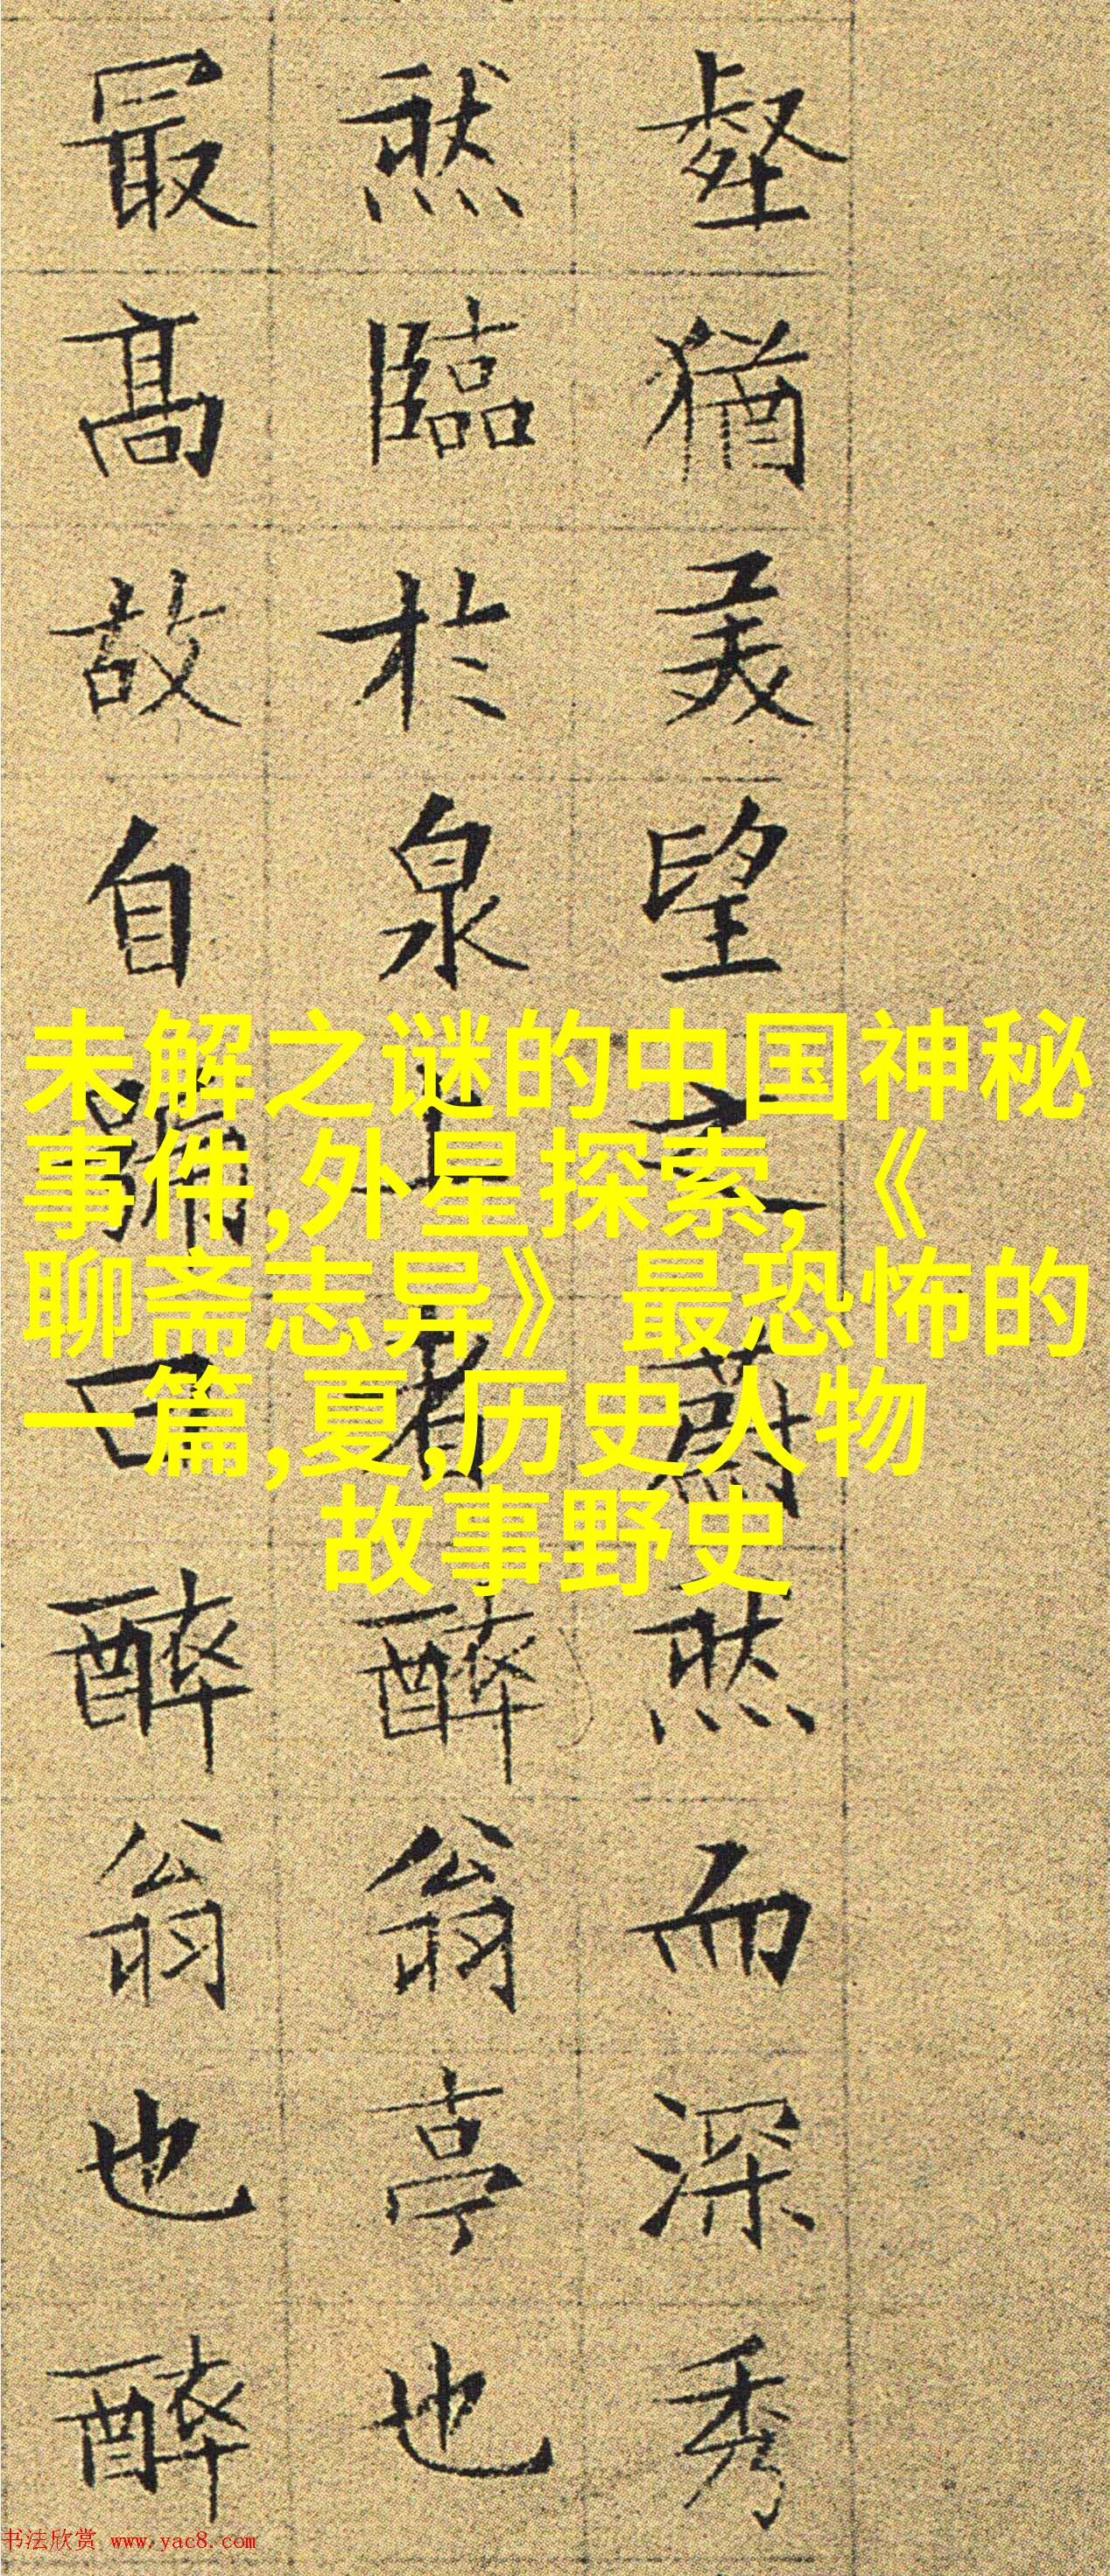 壑猶美望之蔚然而深秀
然臨於泉上者醉翁亭也
最高故自號曰醉翁也醉
未解之谜的中国神秘
事件,外星探索,《
聊斋志异》最恐怖的
一篇,夏,历史人物
故事野史
书法欣赏 www.yac8.com